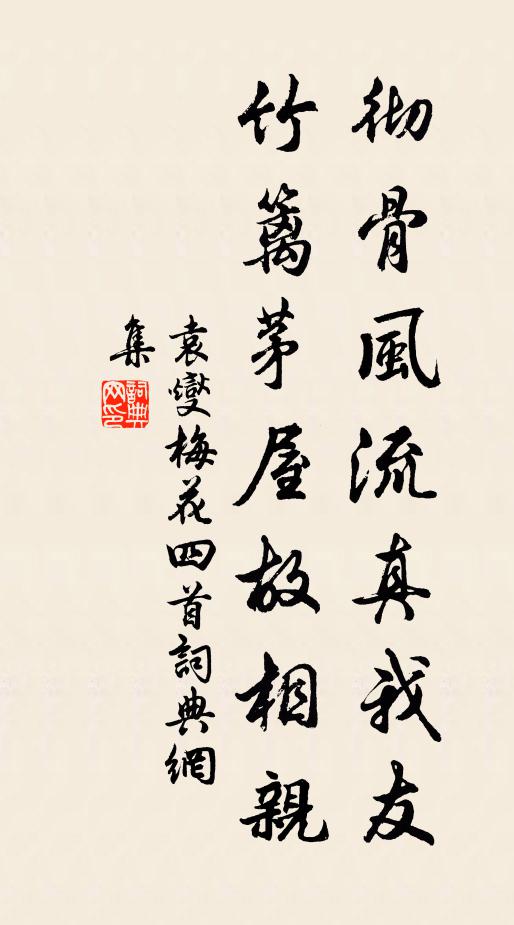 彻骨風流真我友
竹籬茅屋故相親
袁燮梅花四首詞典網
集
詞典网印